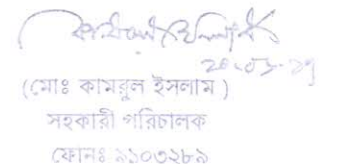 ২০.০১.১৭
(মোঃ কামরুল ইসলাম )
সহকারী পরিচালক
ফোনঃ ৯১০৩২৮৯